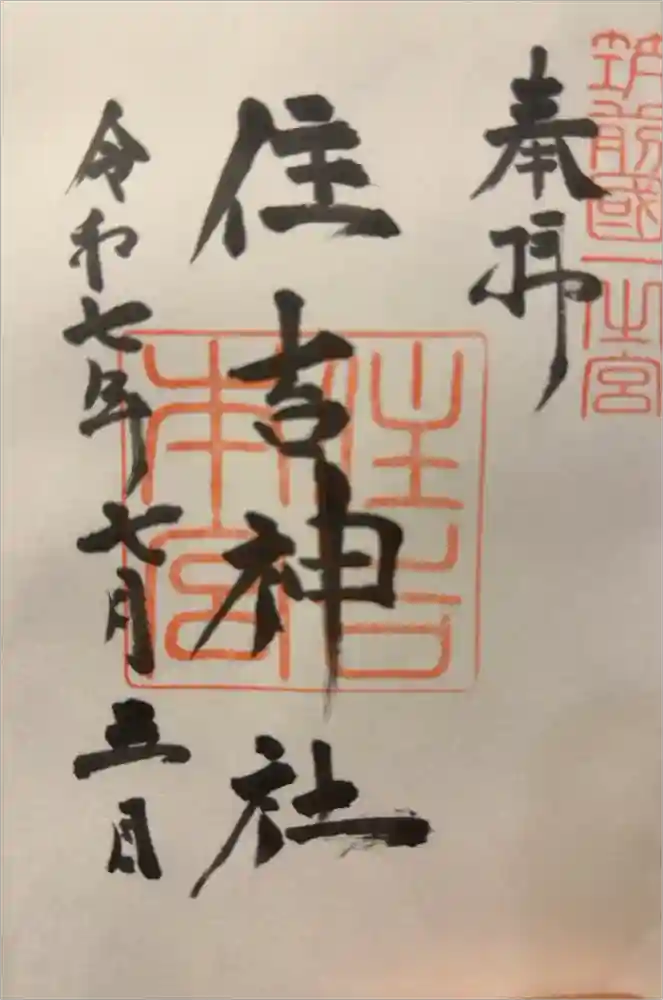 筑前國一之宮
奉拝
住吉神社
住吉本宮
令和七年七月五日